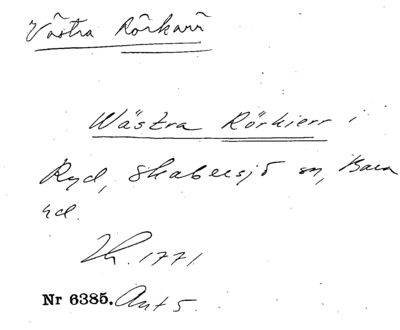 Västra Rörkärr
Wästra Rörkierr i
Ryd, Skabersjö sn, Bara
hd.
Lh. 1771
Nr 6385. Ant 5.